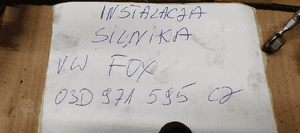 INSTALACJA
SILNIKA
VW FOX
03D 971 595 CJ